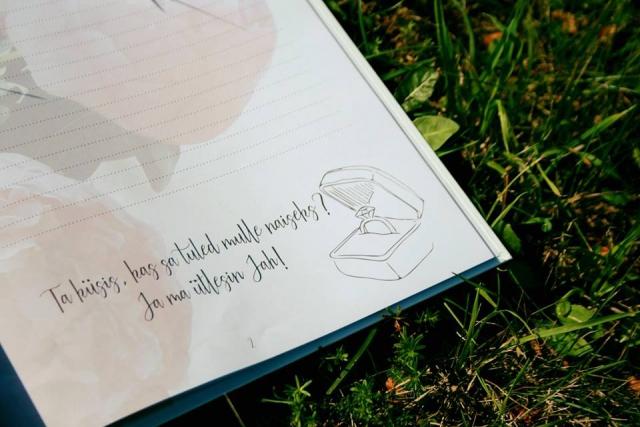 Ta küsis, kas sa tuled mulle naiseks?
Ja ma ütlesin Jah!
2